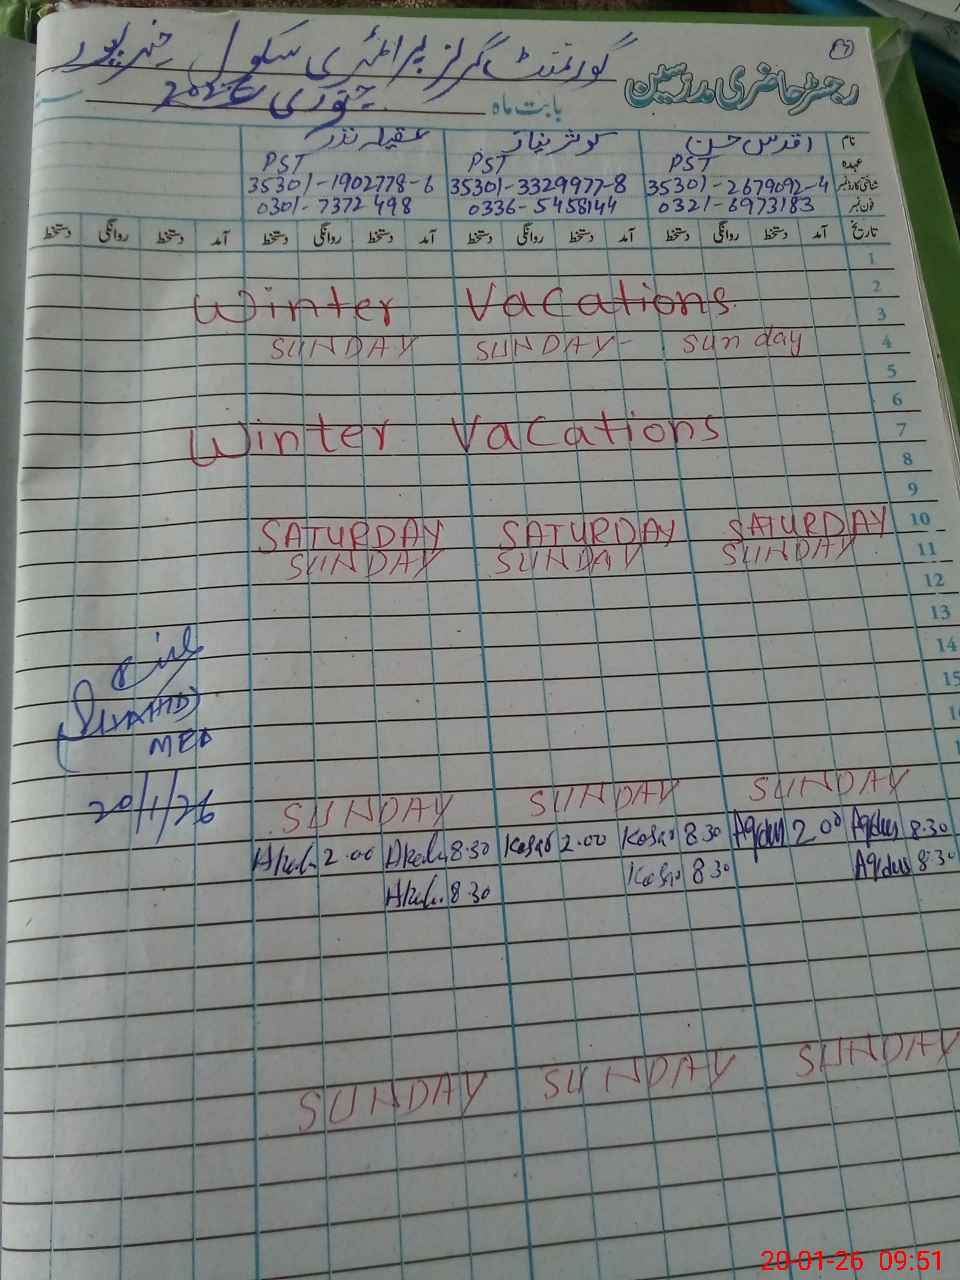 گورنمنٹ گرلز پرائمری سکول
رجسٹر حاضری مدرسین
بابت ماہ جنوری 2026
نام اقدس حسن کوثر نیاز عقیلہ نذر
عہدہ PST PST PST
شناختی کارڈ نمبر 35301-2679092-4 35301-3329977-8 35301-1902778-6
فون نمبر 0321-6973183 0336-5458144 0301-7372498
تاریخ آمد دستخط روانگی دستخط آمد دستخط روانگی دستخط آمد دستخط روانگی دستخط آمد دستخط روانگی دستخط
1
2
Winter Vacations
3
SUNDAY SUNDAY Sunday 4
5
6
Winter Vacations 7
8
9
SATURDAY SATURDAY SATURDAY 10
SUNDAY SUNDAY SUNDAY 11
12
13
14
15
MEA
20/1/26
SUNDAY SUNDAY SUNDAY
2.00 8.30 Kosar 2.00 Kosar 8.30 Aqdus 2.00 Aqdus 8.30
8.30 Kosar 8.30 Aqdus 8.30
SUNDAY SUNDAY SUNDAY
20-01-26 09:51